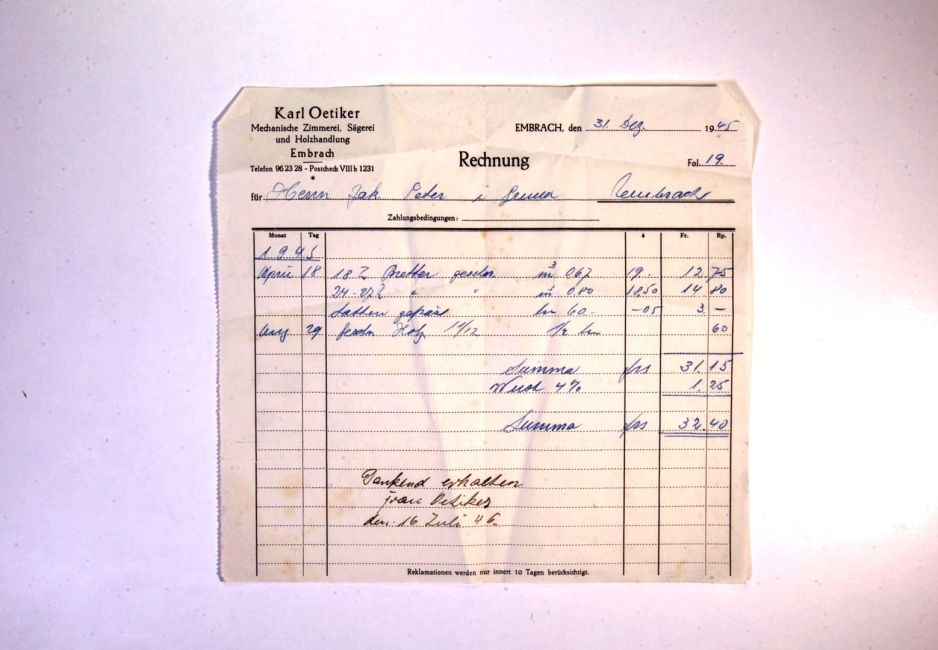 Karl Oetiker
Mechanische Zimmerei, Sägerei
und Holzhandlung
Embrach
Telefon 96 23 28 - Postcheck VIII b 1231
EMBRACH, den 31. Dez. 1945
Rechnung
Fol. 19.
für Herrn Jak. Peter i.
Zahlungsbedingungen:
Monat Tag à Fr. Rp.
1.9.45
April 18 18 Bretter geschn. m³ 0.67 19.- 12.75
24-27 " " m³ 0.80 18.50 14.80
Latten 60.- -05 3.-
Aug 29 Holz 60
Summa frs 31.15
Wust 4% 1.25
Summa frs 32.40
Dankend erhalten
Frau Oetiker
den. 16 Juli 46.
Reklamationen werden nur innert 10 Tagen berücksichtigt.